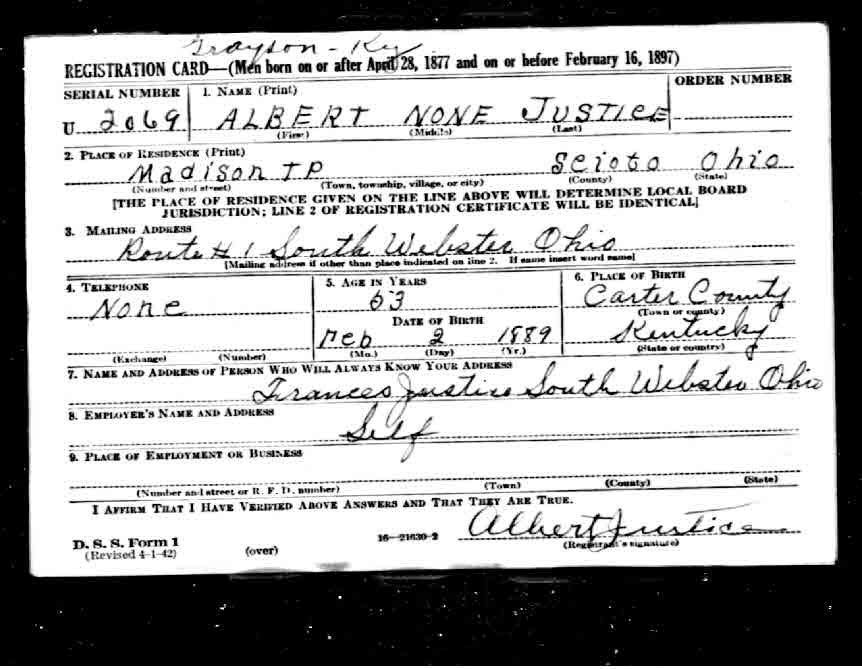 Grayson - Ky
REGISTRATION CARD—(Men born on or after April 28, 1877 and on or before February 16, 1897)
SERIAL NUMBER 1. NAME (Print) ORDER NUMBER
U 2069 ALBERT NONE JUSTICE
(First) (Middle) (Last)
2. PLACE OF RESIDENCE (Print)
Madison TP Scioto Ohio
(Number and street) (Town, township, village, or city) (County) (State)
[THE PLACE OF RESIDENCE GIVEN ON THE LINE ABOVE WILL DETERMINE LOCAL BOARD
JURISDICTION; LINE 2 OF REGISTRATION CERTIFICATE WILL BE IDENTICAL]
3. MAILING ADDRESS
Route # 1 South Webster Ohio
[Mailing address if other than place indicated on line 2. If same insert word same]
4. TELEPHONE 5. AGE IN YEARS 6. PLACE OF BIRTH
None 53 Carter County
DATE OF BIRTH (Town or county)
Feb 2 1889 Kentucky
(Exchange) (Number) (Mo.) (Day) (Yr.) (State or country)
7. NAME AND ADDRESS OF PERSON WHO WILL ALWAYS KNOW YOUR ADDRESS
Frances Justice South Webster Ohio
8. EMPLOYER'S NAME AND ADDRESS
Self
9. PLACE OF EMPLOYMENT OR BUSINESS
(Number and street or R. F. D. number) (Town) (County) (State)
I AFFIRM THAT I HAVE VERIFIED ABOVE ANSWERS AND THAT THEY ARE TRUE.
Albert Justice
D. S. S. Form 1 16—21630-2 (Registrant's signature)
(Revised 4-1-42) (over)